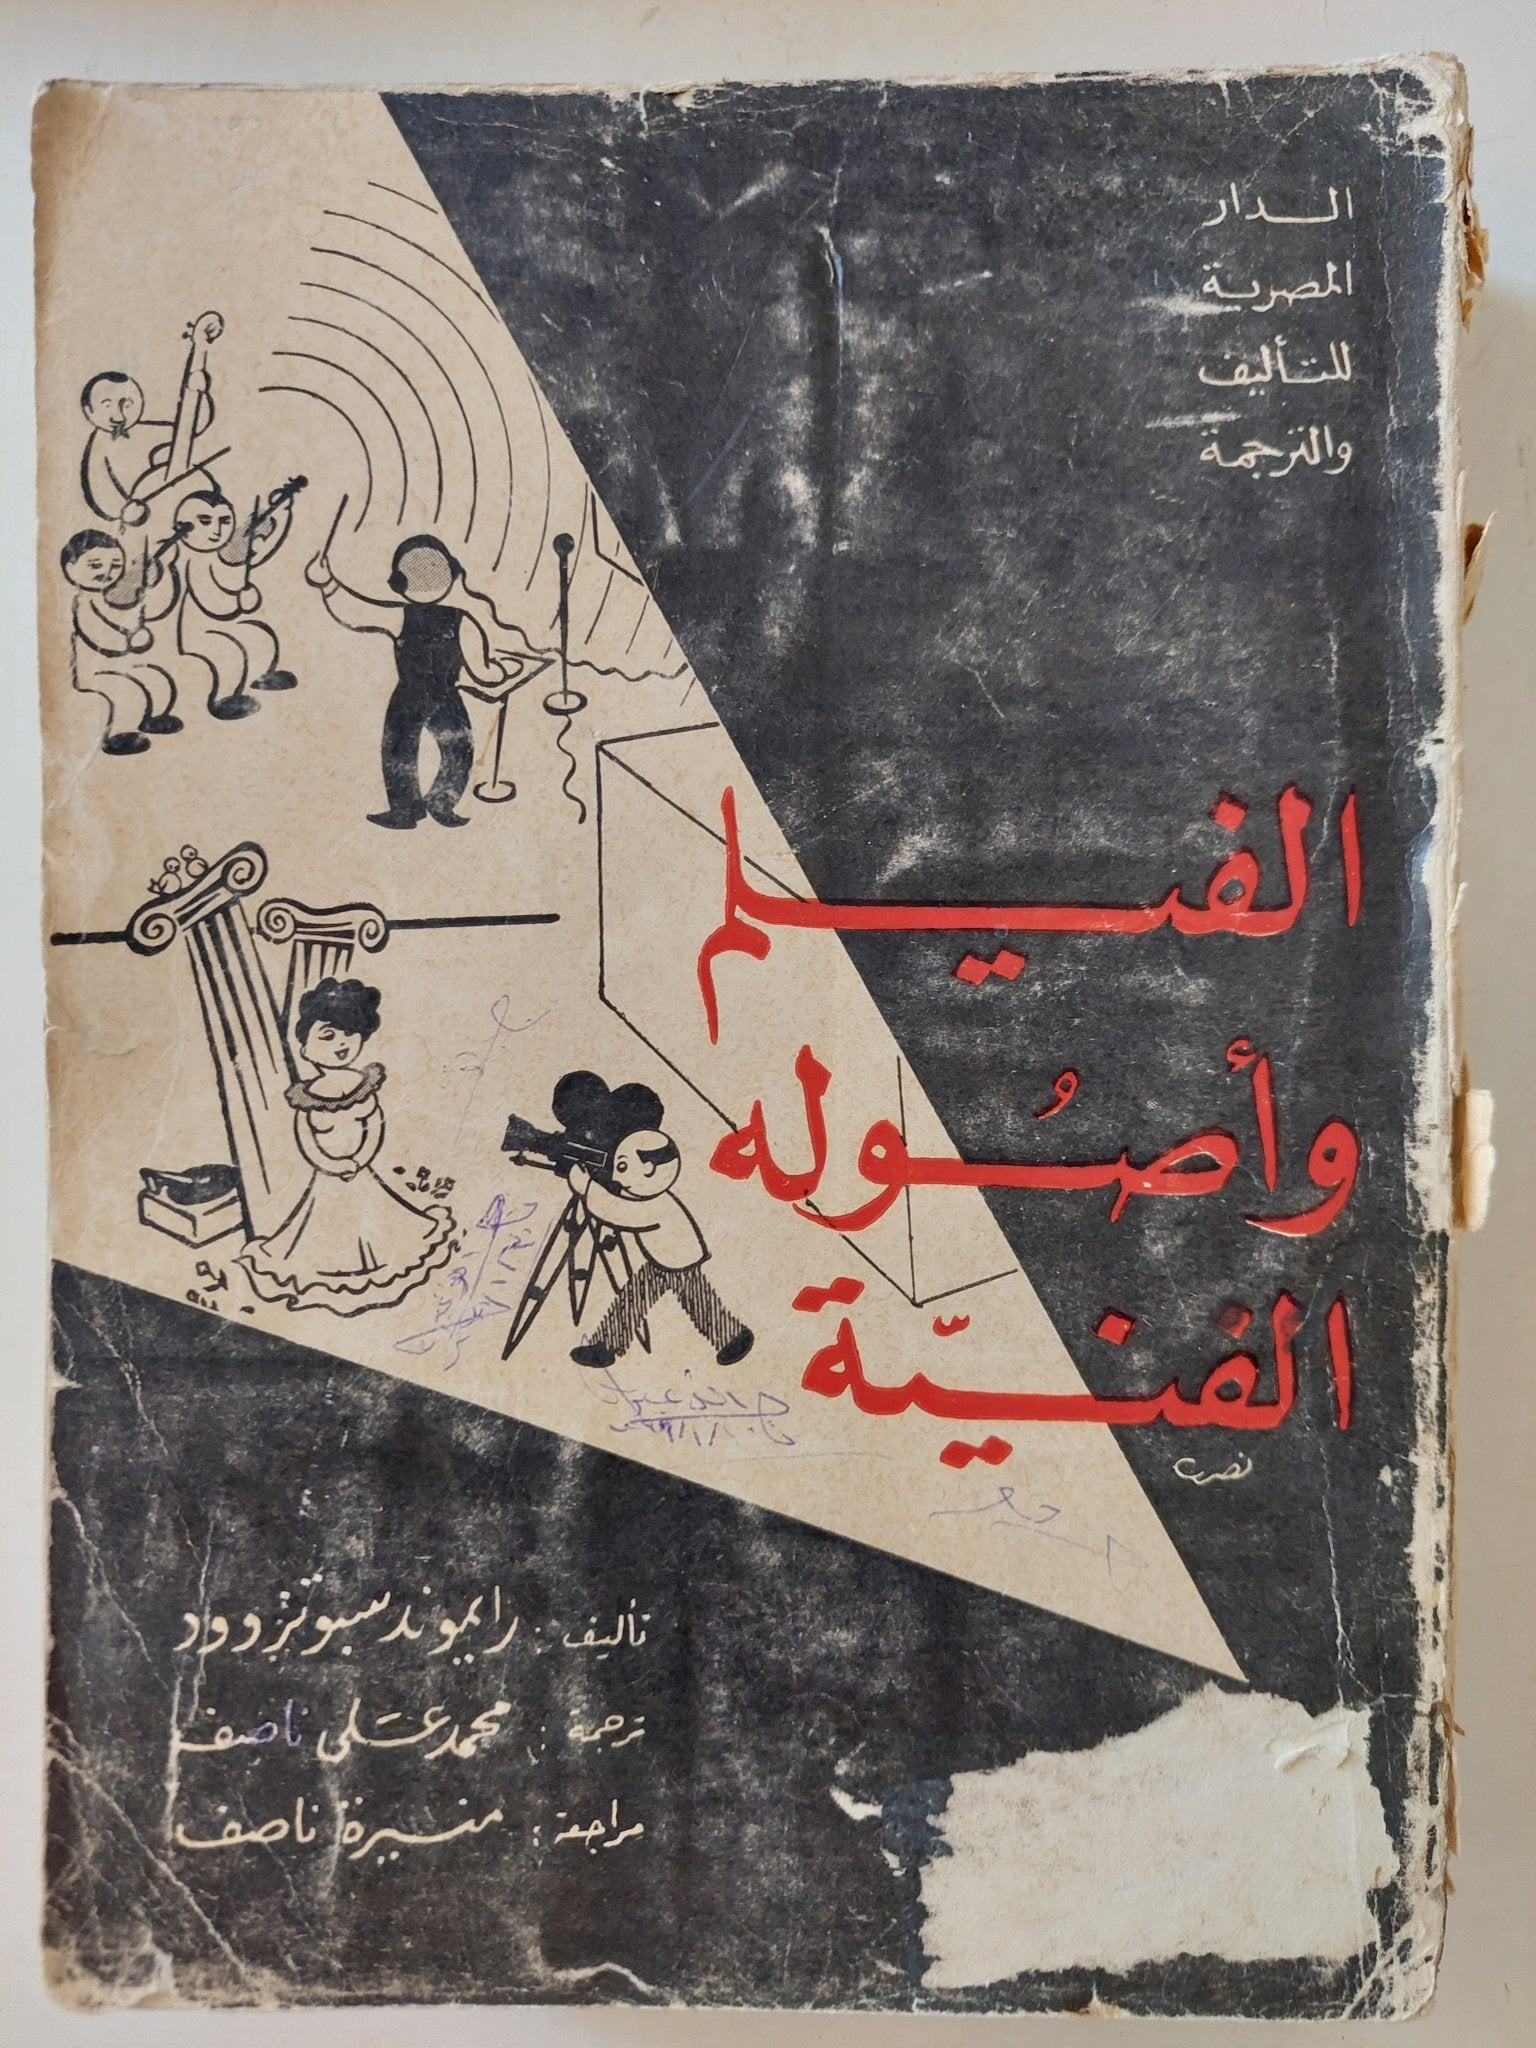 الدار
المصرية
للتأليف
والترجمة
الفيلم
وأصُوله
الفنيّة
تأليف : رايموند سبوتزوود
ترجمة : محمد على ناصف
مراجعة : منيرة ناصف